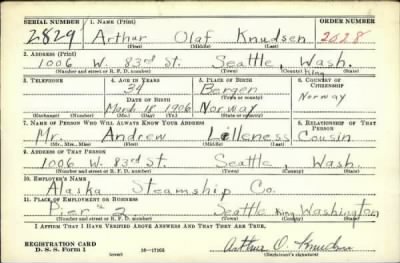 SERIAL NUMBER 1. NAME (Print) ORDER NUMBER
2829 Arthur Olaf Knudsen 2028
(First) (Middle) (Last)
2. ADDRESS (Print)
1006 W. 83rd St. Seattle, Wash.
King
(Number and street or R. F. D. number) (Town) (County) (State)
3. TELEPHONE 4. AGE IN YEARS 5. PLACE OF BIRTH 6. COUNTRY OF CITIZENSHIP
34 Bergen
(Town or county)
DATE OF BIRTH Norway
March 18 1906 Norway
(Exchange) (Number) (Mo.) (Day) (Yr.) (State or country)
7. NAME OF PERSON WHO WILL ALWAYS KNOW YOUR ADDRESS 8. RELATIONSHIP OF THAT PERSON
Mr. Andrew Lilleness Cousin
(Mr., Mrs., Miss) (First) (Middle) (Last)
9. ADDRESS OF THAT PERSON
1006 W. 83rd St. Seattle, Wash.
(Number and street or R. F. D. number) (Town) (County) (State)
10. EMPLOYER'S NAME
Alaska Steamship Co.
11. PLACE OF EMPLOYMENT OR BUSINESS
Pier # 2 Seattle King Washington
(Number and street or R. F. D. number) (Town) (County) (State)
I AFFIRM THAT I HAVE VERIFIED ABOVE ANSWERS AND THAT THEY ARE TRUE.
REGISTRATION CARD
D. S. S. Form 1 (over) Arthur O. Knudsen
(Registrant's signature)